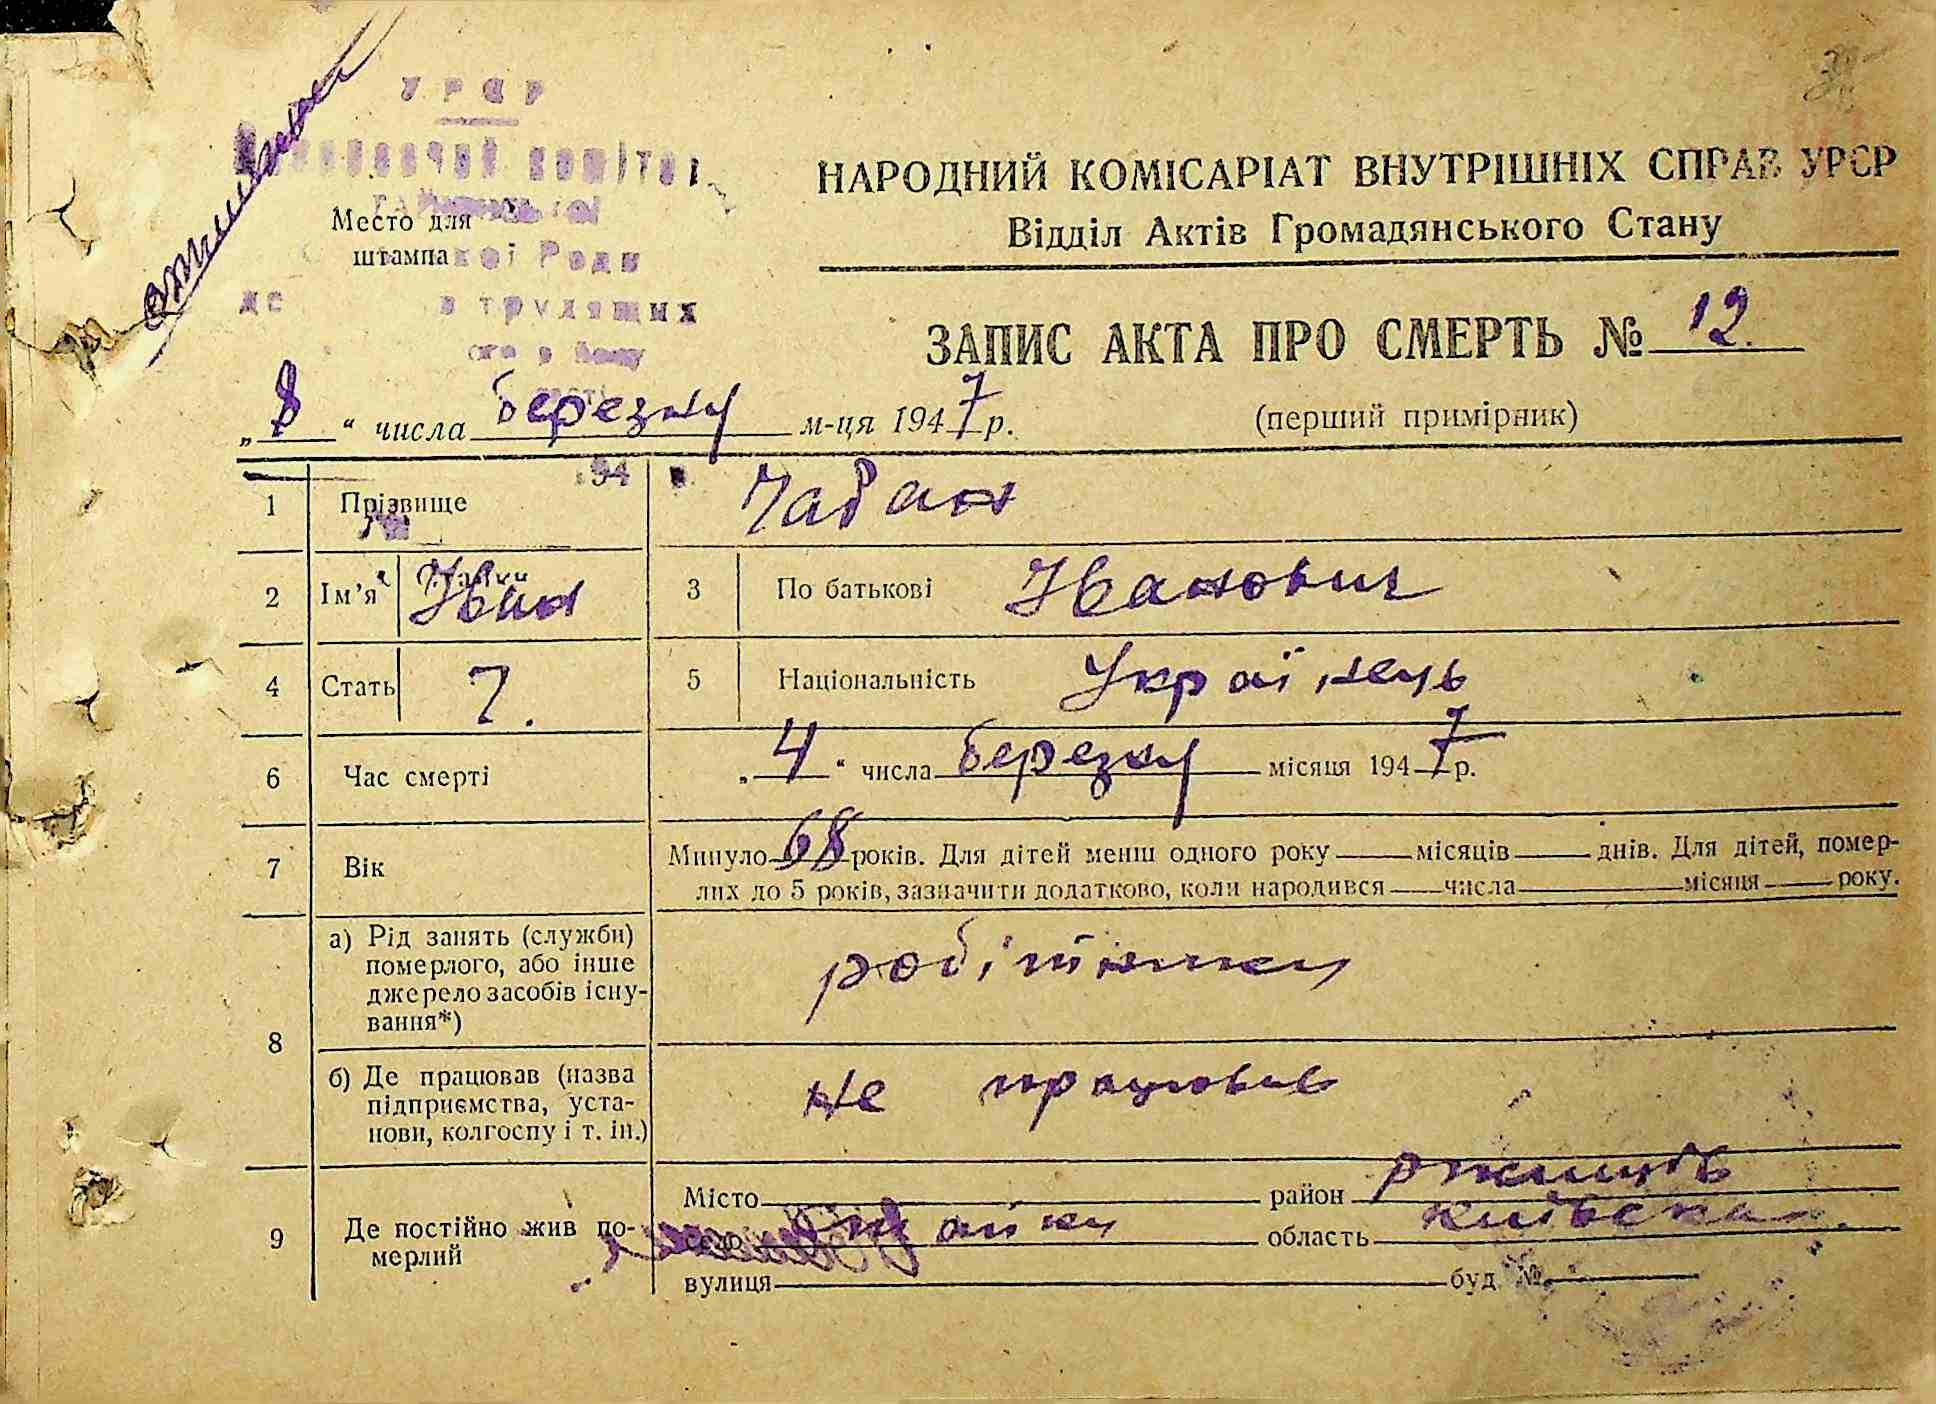 УРСР
НАРОДНИЙ КОМІСАРІАТ ВНУТРІШНІХ СПРАВ УРСР
Відділ Актів Громадянського Стану
Место для
штампа
трудящих
ЗАПИС АКТА ПРО СМЕРТЬ № 12.
„8“ числа березня м-ця 1947 р.
(перший примірник)
194
1 Прізвище Чабан
2 Ім’я Іван 3 По батькові Іванович
4 Стать Ч. 5 Національність Українець
6 Час смерті „4“ числа березня місяця 1947 р.
7 Вік Минуло 68 років. Для дітей менш одного року місяців днів. Для дітей, помер-
лих до 5 років, зазначити додатково, коли народився числа місяця року.
8 а) Рід занять (служби)
померлого, або інше
джерело засобів існу-
вання*)
робітник
б) Де працював (назва
підприємства, уста-
нови, колгоспу і т. ін.)
не працював
9 Де постійно жив по-
мерлий
Місто район Ржищів
село область Київська
вулиця буд. №